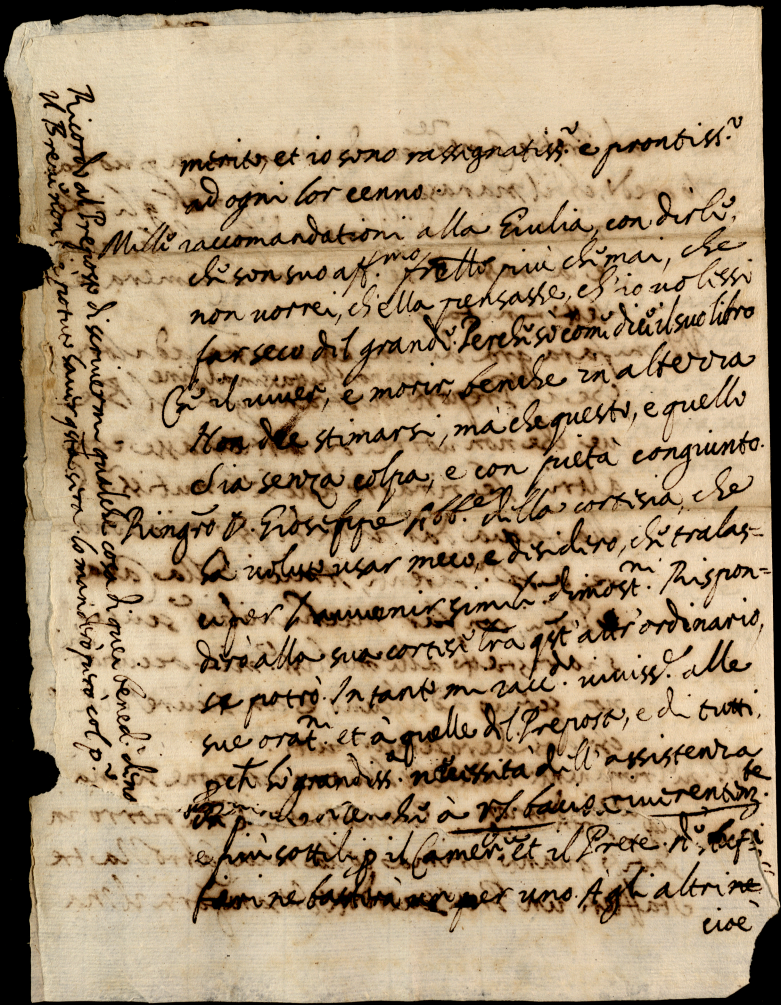 merito, et io sono rassegnatiss.º e prontiss.º
ad ogni lor cenno.
Mille raccomandationi alla Giulia, con dirle,
che son suo aff.mo frello più che mai, che
non vorrei, ch'ella pensasse, ch'io volessi
far seco del grande. Perche sò come dice il suo libro
Che il viver, e morir, benche in alterria
Non dee stimarsi, mà che questo, e quello
Sia senza colpa, e con pietà congiunto.
Ringro D. Gioseffe Abb.e della cortesia, che
hà voluto usar meco, e desidero, che tralas=
ci per l'avvenir simili dimost.ni. Rispon=
derò alla sua cortese lra qst'altr'ordinario,
se potrò. Intanto mi racc.do viviss.e alle
sue orat.ni et à quelle del Preposto, e di tutti,
pch hò grandiss.a necessità dell'assistenza
à bacio riverentem.te
e più sottili p il et il Prete
ne basterà un per uno. Agli altri ne
cioè
Ricordi al Preposto di scrivermi qualche cosa di quei bened.i
Il Breve non si è potuto haver qsta sera lo manderò però col p.º